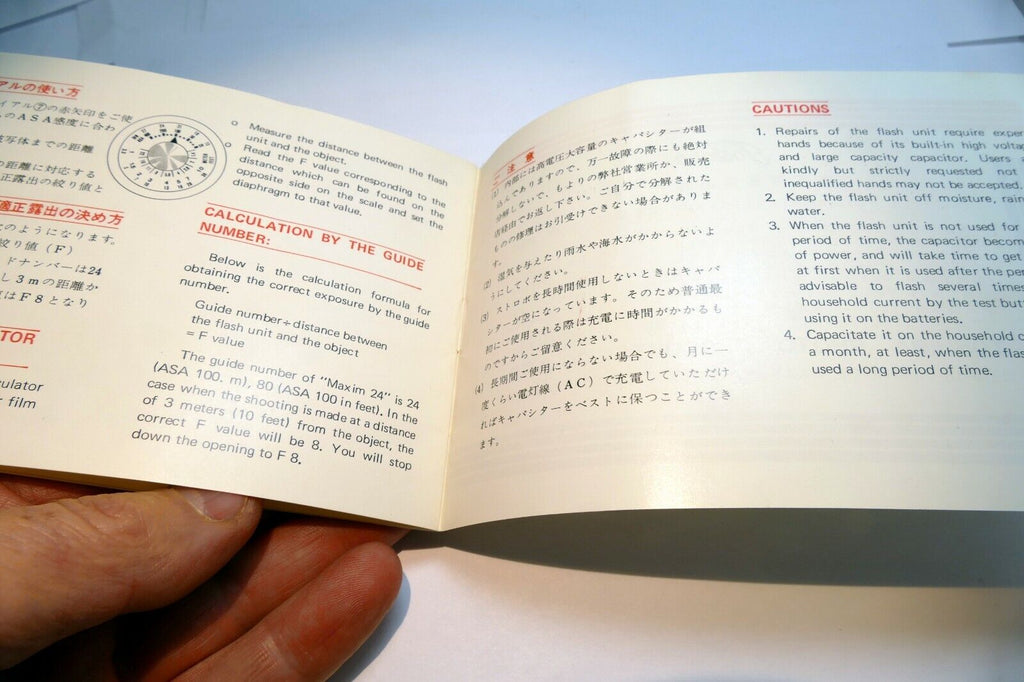 アルの使い方
イアル⑦の赤矢印をご使
のASA感度に合わ
被写体までの距離
の距離に対応する
正露出の絞り値と
適正露出の決め方
のようになります。
絞り値(F)
ドナンバーは24
し3mの距離か
値はF8となり
TOR
culator
r film
o Measure the distance between the flash
unit and the object.
o Read the F value corresponding to the
distance which can be found on the
opposite side on the scale and set the
diaphragm to that value.
CALCULATION BY THE GUIDE
NUMBER:
Below is the calculation formula for
obtaining the correct exposure by the guide
number.
Guide number÷distance between
the flash unit and the object
= F value
The guide number of "Maxim 24" is 24
(ASA 100. m), 80 (ASA 100 in feet). In the
case when the shooting is made at a distance
of 3 meters (10 feet) from the object, the
correct F value will be 8. You will stop
down the opening to F 8.
ご注意
(1) 内部には高電圧大容量のキャパシターが組
込んでありますので、万一故障の際にも絶対
分解しないで、もよりの弊社営業所か、販売
店経由でお返し下さい。ご自分で分解された
ものの修理はお引受けできない場合がありま
す。
(2) 湿気を与えたり雨水や海水がかからないよ
うにしてください。
(3) ストロボを長時間使用しないときはキャパ
シターが空になっています。そのため普通最
初にご使用される際は充電に時間がかかるも
のですからご留意ください。
(4) 長期間ご使用にならない場合でも、月に一
度くらい電灯線(AC)で充電していただけ
ればキャパシターをベストに保つことができ
ます。
CAUTIONS
1. Repairs of the flash unit require exper
hands because of its built-in high volta
and large capacity capacitor. Users a
kindly but strictly requested not
inequalified hands may not be accepted.
2. Keep the flash unit off moisture, rain
water.
3. When the flash unit is not used for
period of time, the capacitor becom
of power, and will take time to get
at first when it is used after the per
advisable to flash several times
household current by the test butt
using it on the batteries.
4. Capacitate it on the household c
a month, at least, when the flas
used a long period of time.